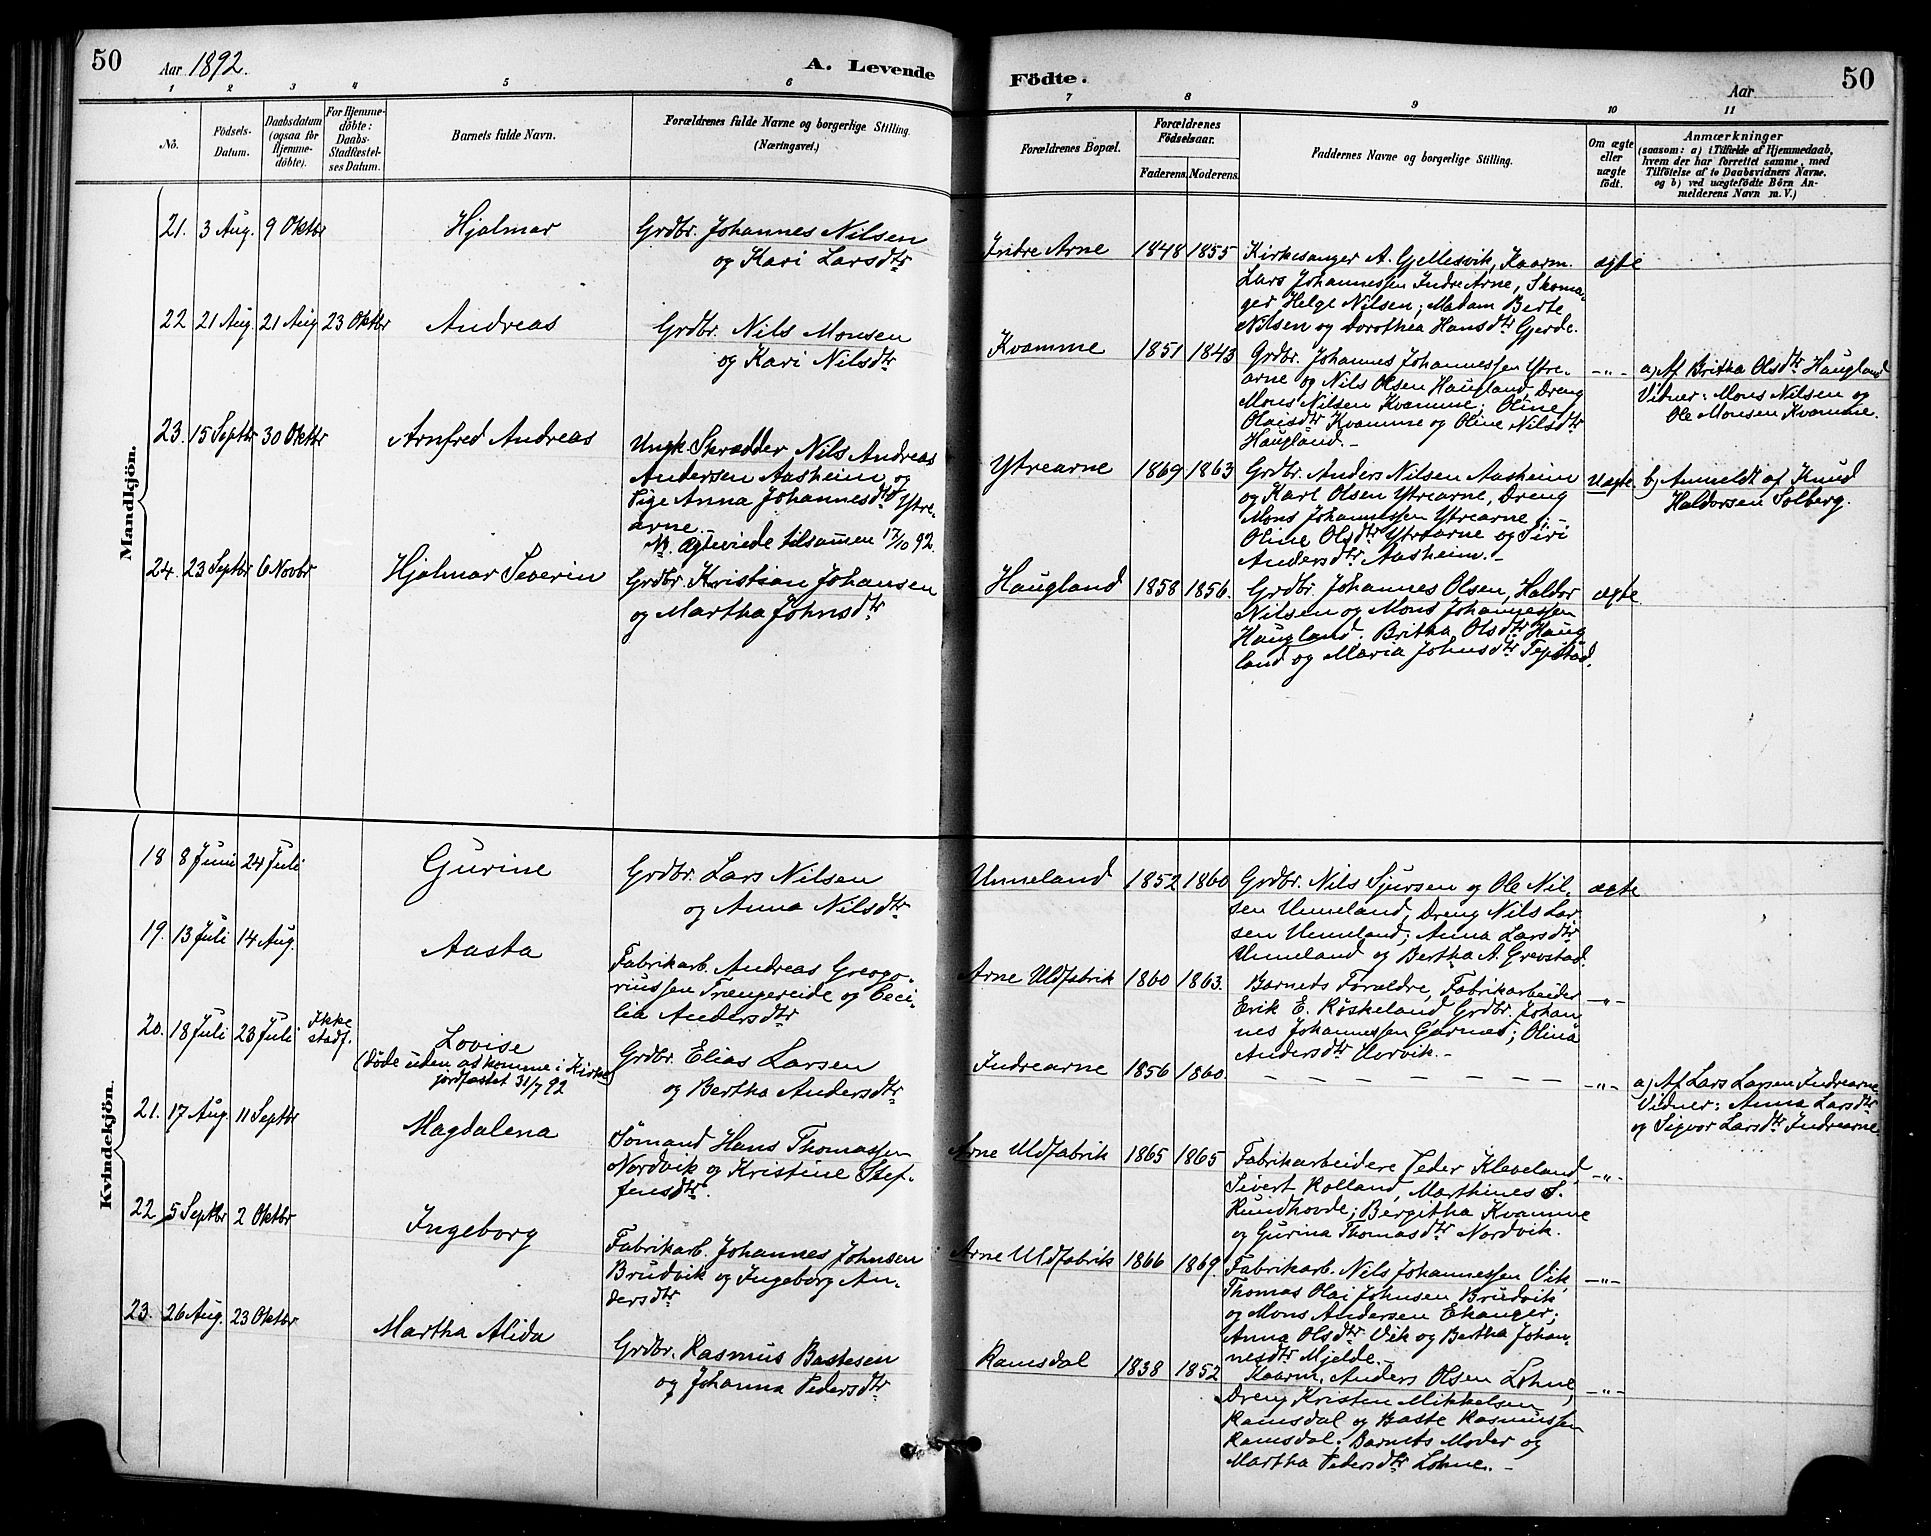 50
Aar 1892.
A. Levende
Födte.
Aar
50
1 2 3 4 5 6 7 8 9 10 11
No.
Födsels-
Datum.
Daabsdatum
(ogsaa for
Hjemme-
döbte).
For Hjemme-
döbte:
Daabs-
Stadfestel-
ses Datum.
Barnets fulde Navn.
Forældrenes fulde Navne og borgerlige Stilling.
(Næringsvei.)
Forældrenes Bopæl.
Forældrenes
Födselsaar.
Faderens. Moderens.
Faddernes Navne og borgerlige Stilling.
Om ægte
eller
uægte
födt.
Anmærkninger
(saasom: a) i Tilfælde af Hjemmedaab,
hvem der har forrettet samme, med
Tilföielse af to Daabsvidners Navne.
og b) ved uægtefödte Börn An-
melderens Navn m. V.)
Mandkjön.
21. 3 Aug. 9 Oktbr
Hjalmar
Grdbr. Johannes Nilsen
og Kari Larsdtr
Indre Arne 1848 1855
Kirkesanger A. Gjellesvik, Kaarm.
Lars Johannessen Indre Arne, Skoma-
ger Helge Nilsen; Madam Berte
Nilsen og Dorothea Hansdtr Gjerde.
ægte
22 21 Aug. 21 Aug 23 Oktbr
Andreas
Grdbr. Nils Monsen
og Kari Nilsdtr
Kvamme 1851 1843
Grdbr. Johannes Johannessen Ytre-
arne og Nils Olsen Haugland, Dreng
Mons Nilsen Kvamme; Oline
Olaisdtr Kvamme og Oline Nilsdtr
Haugland.-
-"-
a) Af Britha Olsdtr Haugland
Vidner: Mons Nilsen og
Ole Monsen Kvamme.
23. 15 Septbr 30 Oktbr
Arnfred Andreas
Ungk. Skrædder Nils Andreas
Andersen Aasheim og
Pige Anna Johannesdtr Ytre-
arne
Nb. Ægteviede tilsammen 17/10 92.
Ytrearne 1869 1863
Grdbr. Anders Nilsen Aasheim
og Karl Olsen Ytrearne, Dreng
Mons Johannessen Ytrearne;
Oline Olsdtr Ytrearne og Siri
Andersdtr Aasheim.-
Uægte
b) Anmeldt af Knud
Haldorsen Solberg.
24. 23 Septbr 6 Novbr
Hjalmar Severin
Grdbr. Kristian Johansen
og Martha Johnsdtr
Haugland 1858 1856.
Grdbr. Johannes Olsen, Haldor
Nilsen og Mons Johannessen
Haugland. Britha Olsdtr Haug
land og Maria Johnsdtr
ægte.
Kvindekjön.
18 8 Juni 24 Juli
Gurine
Grdbr. Lars Nilsen
og Anna Nilsdtr
Unneland 1852 1860
Grdbr. Nils Sjursen og Ole Nil-
sen Unneland, Dreng Nils Lar-
sen Unneland; Anna Larsdtr
Unneland og Bertha A. Grevstad.
ægte
19. 13 Juli 14 Aug.
Aasta
Fabrikarb. Andreas Greogo-
riussen Trængereide og Ceci-
lia Andersdtr
Arne Uldfabrik 1860 1863.
Barnets Forældre, Fabrikarbeider
Erik E. Röskeland Grdbr. Johan-
nes Johannessen Garnæs; Olina
Andersdtr
-"-
20. 18 Juli 23 Juli Ikke
stadf.
Lovise
(Döde uden at komme i Kirke)
jordfæstet 31/7 92
Grdbr. Elias Larsen
og Bertha Andersdtr
Indrearne 1856 1860.
- - - - - - - - -
-"-
a) Af Lars Larsen Indrearne
Vidner: Anna Larsdtr
og Sigvor Larsdtr Indrearne.
21. 17 Aug. 11 Septbr
Magdalena
Sömand Hans Thomassen
Nordvik og Kristine Stef-
fensdtr.
Arne Uldfabrik 1865 1865
Fabrikarbeidere Peder Kleveland,
Sivert Holland, Marthines S.
Rundhovde; Bergitha Kvamme
og Gurina Thomasdtr Nordvik.
-"-
22 5 Septbr 2 Oktbr
Ingeborg
Fabrikarb. Johannes Johnsen
Brudvik og Ingeborg An-
dersdtr
Arne Uldfabrik 1866 1869.
Fabrikarb. Nils Johannessen Vik,
Thomas Olai Johnsen Brudvik
og Mons Andersen Ekanger;
Anna Olsdtr Vik og Bertha Johan-
nesdtr Mjelde.-
-"-
23. 26 Aug. 23 Oktbr
Martha Alida
Grdbr. Rasmus Bastesen
og Johanna Pedersdtr
Ramsdal 1838 1852
Kaarm. Anders Olsen Lohne,
Dreng Kristen Mikkelsen
Ramsdal og Baste Rasmussen
Ramsdal; Barnets Moder og
Martha Pedersdtr Lohne.-
-"-